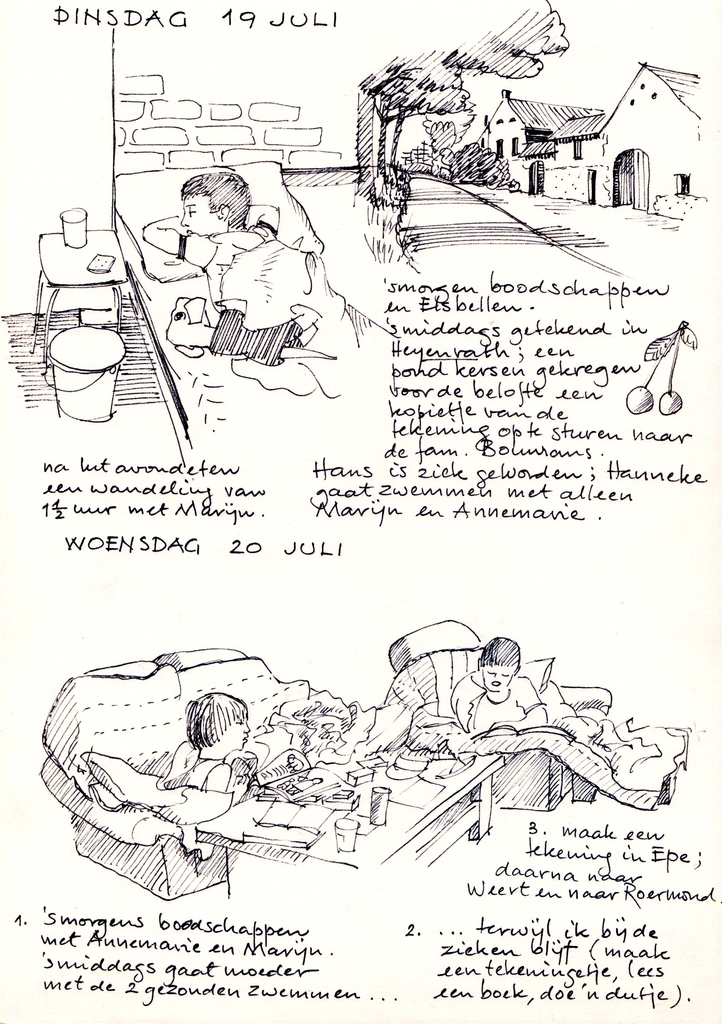 DINSDAG 19 JULI
'smorgen boodschappen
en Elsbellen.
'smiddags getekend in
Heyenrath; een
pond kersen gekregen
voor de belofte een
kopietje van de
tekening op te sturen naar
de fam. Boumans.
na het avondeten
een wandeling van
1½ uur met Marijn.
Hans is ziek geworden; Hanneke
gaat zwemmen met alleen
Marijn en Annemarie.
WOENSDAG 20 JULI
1. 'smorgens boodschappen
met Annemarie en Marijn.
'smiddags gaat moeder
met de 2 gezonden zwemmen ...
2. ... terwijl ik bij de
zieken blijf (maak
een tekeningetje, lees
een boek, doe 'n dutje).
3. maak een
tekening in Epe;
daarna naar
Weert en naar Roermond.